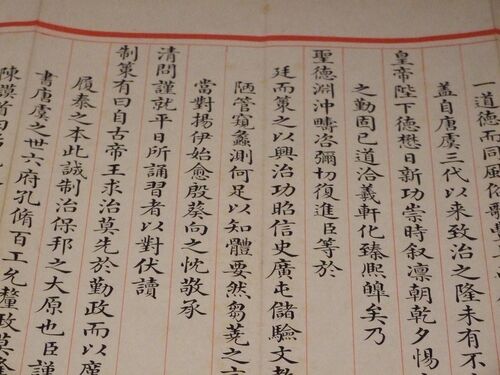 一道德而同風俗
蓋自唐虞三代以來致治之隆未有不
皇帝陛下德懋日新功崇時叙凛朝乾夕惕
之勤固已道洽羲軒化臻熙皞矣乃
聖德淵沖疇咨彌切復進臣等於
廷而策之以興治功昭信史廣屯儲驗文教
陋管窺蠡測何足以知體要然芻蕘之
當對揚伊始愈殷葵向之忱敬承
清問謹就平日所誦習者以對伏讀
制策有曰自古帝王求治莫先於勤政而以廣
履泰之本此誠制治保邦之大原也臣謹
書唐虞之世六府孔脩百工允釐政莫
陳謨首曰